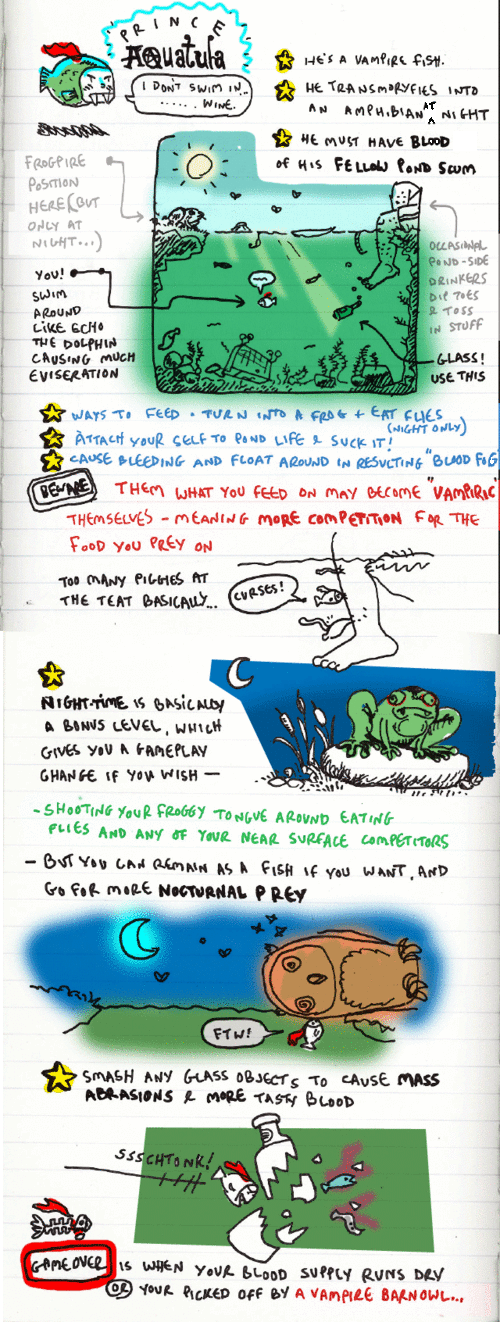 PRINCE
AQuatula
I DON'T SWIM IN...
...... WINE.
HE'S A VAMPIRE FISH.
HE TRANSMORYFIES INTO
AN AMPHIBIAN AT NIGHT
HE MUST HAVE BLOOD
OF HIS FELLOW POND SCUM
FROGPIRE
POSITION
HERE (BUT
ONLY AT
NIGHT...)
YOU!
SWIM
AROUND
LIKE ECHO
THE DOLPHIN
CAUSING MUCH
EVISERATION
OCCASIONAL
POND-SIDE
DRINKERS
DIP TOES
& TOSS
IN STUFF
GLASS!
USE THIS
WAYS TO FEED • TURN INTO A FROG + EAT FLIES
(NIGHT ONLY)
ATTACH YOUR SELF TO POND LIFE & SUCK IT!
CAUSE BLEEDING AND FLOAT AROUND IN RESULTING "BLOOD FOG"
BEWARE
THEM WHAT YOU FEED ON MAY BECOME "VAMPIRIC"
THEMSELVES - MEANING MORE COMPETITION FOR THE
FOOD YOU PREY ON
TOO MANY PIGGIES AT
THE TEAT BASICALLY...
CURSES!
NIGHT-TIME IS BASICALLY
A BONUS LEVEL, WHICH
GIVES YOU A GAMEPLAY
CHANGE IF YOU WISH —
- SHOOTING YOUR FROGGY TONGUE AROUND EATING
FLIES AND ANY OF YOUR NEAR SURFACE COMPETITORS
- BUT YOU CAN REMAIN AS A FISH IF YOU WANT, AND
GO FOR MORE NOCTURNAL PREY
FTW!
SMASH ANY GLASS OBJECTS TO CAUSE MASS
ABRASIONS & MORE TASTY BLOOD
SSSCHTONK!
GAME OVER IS WHEN YOUR BLOOD SUPPLY RUNS DRY
OR YOUR PICKED OFF BY A VAMPIRE BARN OWL...